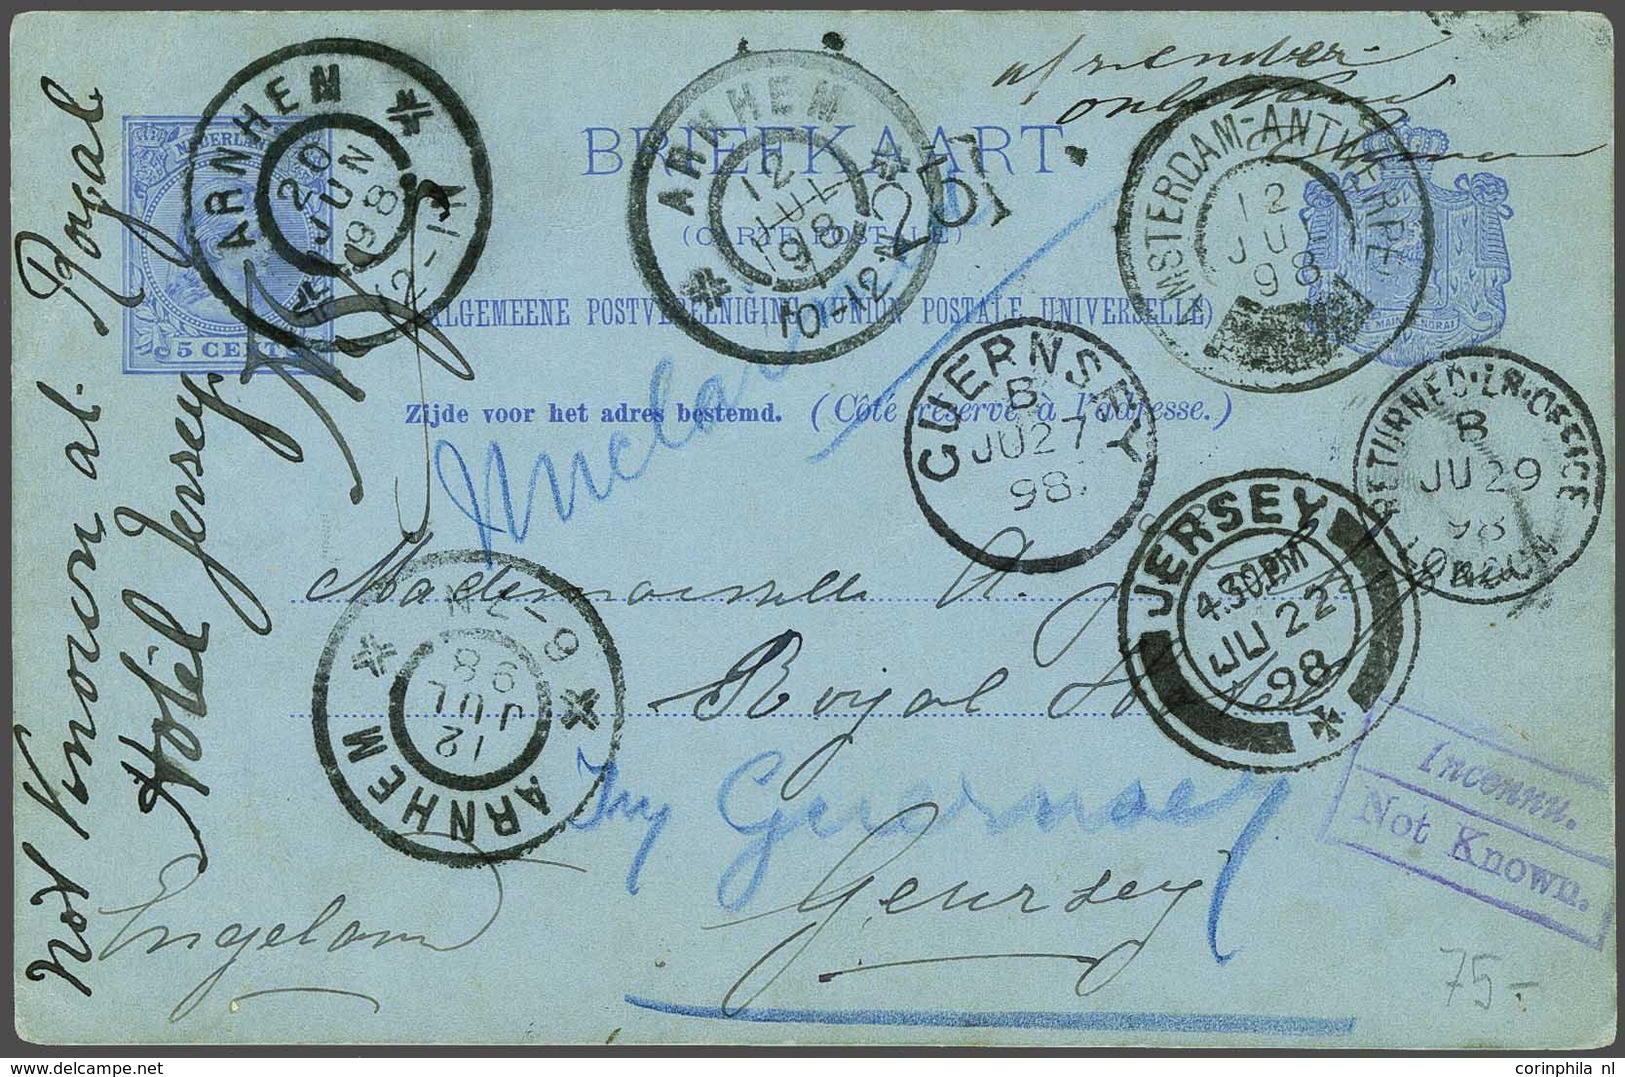 BRIEFKAART
(CARTE POSTALE)
ALGEMEENE POSTVEREENIGING (UNION POSTALE UNIVERSELLE)
Zijde voor het adres bestemd. (Côté réservé à l'adresse.)
NEDERLAND
5 CENT
ARNHEM
20
JUN
98
12-1N
ARNHEM
12
JUL
98
10-12N
[25]
afzender
onbekend
AMSTERDAM-ANTWERPEN
12
JUL
98
GUERNSEY
B
JU 27
98
RETURNED LR OFFICE
B
JU 29
98
LONDON
JERSEY
4.30PM
JU 22
98
ARNHEM
12
JUL
98
6-7
Mademoiselle A.
Royal Hotel
Try Guernsey
Geursey
Engeland
Not Known at Royal
Hotel Jersey
Inconnu.
Not Known.
75-
corinphila nl